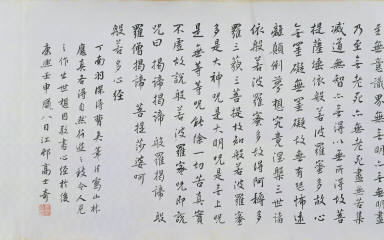 至無意識界無無明亦无無明盡
乃至无老死亦無老死盡無苦集
滅道無智亦无得以無所得故菩
提薩埵依般若波羅蜜多故心
無罣礙無罣礙故無有恐怖遠
離顛倒夢想究竟涅槃三世諸
依般若波羅蜜多故得阿耨多
羅三藐三菩提故知般若波羅蜜
多是大神咒是大明咒是無上咒
是無等等咒能除一切苦真實
不虛故說般若波羅蜜咒即說
咒曰揭諦揭諦般羅揭諦般
羅僧揭諦 菩提莎婆呵
般若多心經
丁南羽得曹吳筆法寫山林
應真妙得自然之致令人見
之作出世想因敬書心經於後
康熙壬申臘八日江邨高士奇